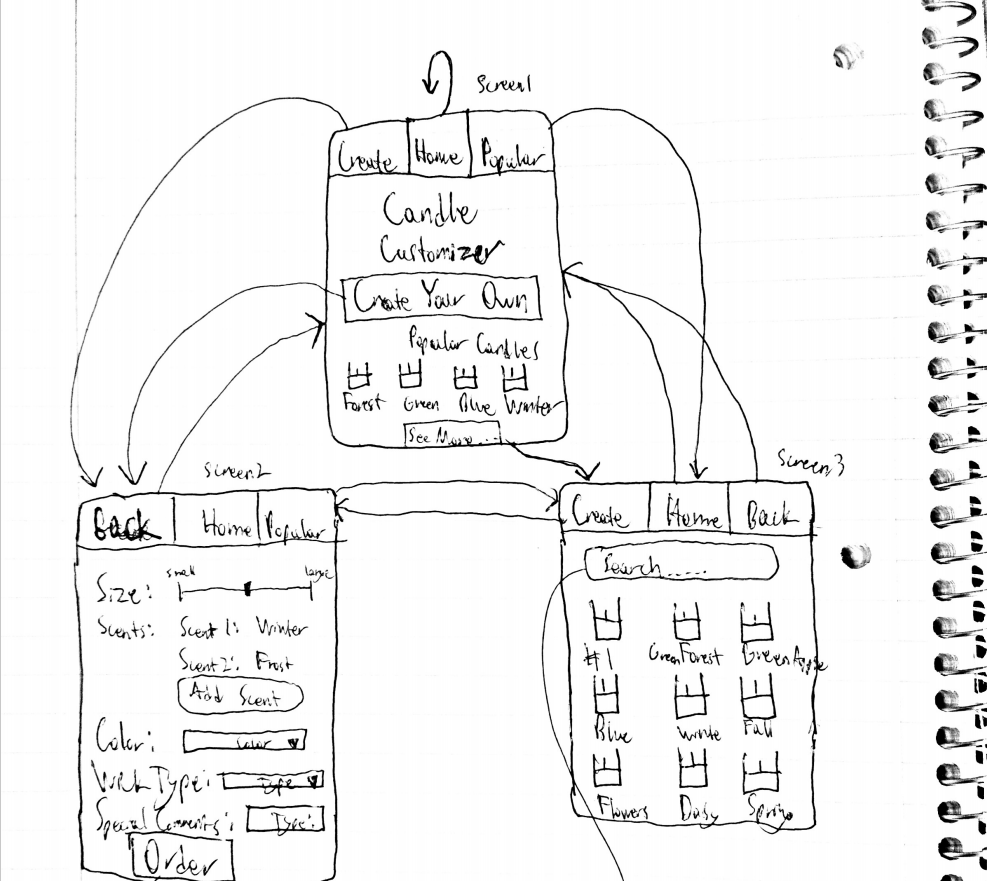 Screen1
Create Home Popular
Candle
Customizer
Create Your Own
Popular Candles
Forest Green Blue Winter
See More...
Screen2
Back Home Popular
small large
Size:
Scents: Scent 1: Winter
Scent2: Frost
Add Scent
Color: Color
Wick Type: Type
Special Comments: Type:
Order
Screen3
Create Home Back
Search......
#1 Green Forest Green Apple
Blue Fall
Flowers Daisy Spring